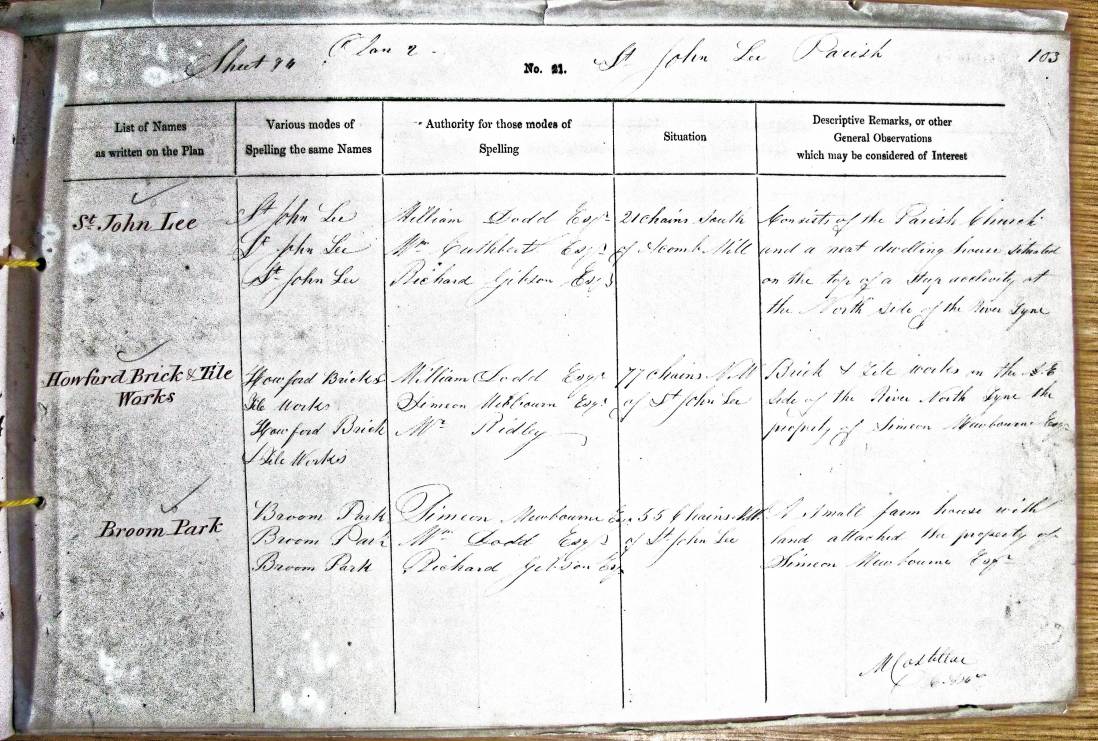 Sheet 94 Plan 2 No. 21. St John Lee Parish 103
List of Names
as written on the Plan
Various modes of
Spelling the same Names
Authority for those modes of
Spelling
Situation
Descriptive Remarks, or other
General Observations
which may be considered of Interest
St. John Lee
St John Lee
St John Lee
St John Lee
William Dodd Esqr
Wm Cuthbert Esqr
Richard Gibson Esqr
21 Chains South
of Acomb Mill
Consists of the Parish Church
and a neat dwelling house situated
on the top of a steep acclivity at
the North side of the River Tyne
Howford Brick & Tile
Works
Howford Brick &
Tile Works
Howford Brick
& Tile Works
William Dodd Esqr
Simeon Mewbourn Esqr
Mr Ridley
77 Chains N.W
of St John Lee
Brick & Tile works on the S.E
side of the River North Tyne the
property of Simeon Mewbourne Esqr
Broom Park
Broom Park
Broom Park
Broom Park
Simeon Mewbourne Esqr
Wm Dodd Esqr
Richard Gibson Esqr
55 Chains NW
of St John Lee
A small farm house with
land attached the property of
Simeon Mewbourne Esqr